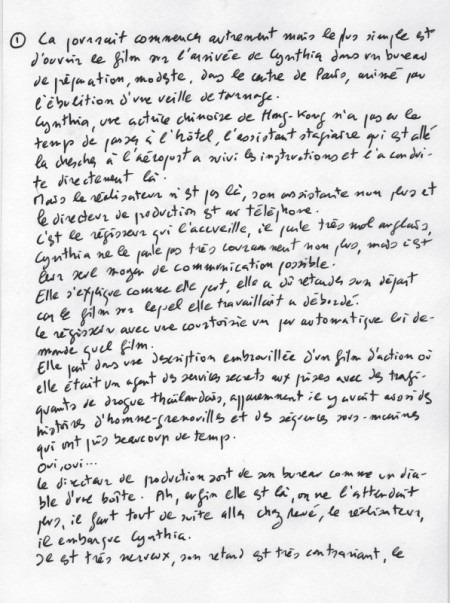 ① Ca pourrait commencer autrement mais le plus simple est
d'ouvrir le film sur l'arrivée de Cynthia dans un bureau
de préparation, modeste, dans le centre de Paris, animé par
l'ébulition d'une veille de tournage.
Cynthia, une actrice chinoise de Hong-Kong n'a pas eu le
temps de passer à l'hôtel, l'assistant stagiaire qui est allé
la chercher à l'aéroport a suivi les instructions et l'a condui-
te directement là.
Mais le réalisateur n'est pas là, son assistante non plus et
le directeur de production est au téléphone.
C'est le régisseur qui l'accueille, il parle très mal anglais,
Cynthia ne le parle pas très couramment non plus, mais c'est
leur seul moyen de communication possible.
Elle s'explique comme elle peut, elle a dû retarder son départ
car le film sur lequel elle travaillait a débordé.
Le régisseur avec une courtoisie un peu automatique lui de-
mande quel film.
Elle part dans une description embrouillée d'un film d'action où
elle était un agent des services secrets aux prises avec des trafi-
quants de drogue thaïlandais, apparemment il y avait aussi des
histoires d'homme-grenouilles et des séquences sous-marines
qui ont pris beaucoup de temps.
Oui, oui...
Le directeur de production sort de son bureau comme un dia-
ble d'une boîte. Ah, enfin elle est là, on ne l'attendait
plus, il faut tout de suite aller chez René, le réalisateur,
il embarque Cynthia.
Il est très nerveux, son retard est très contrariant, le